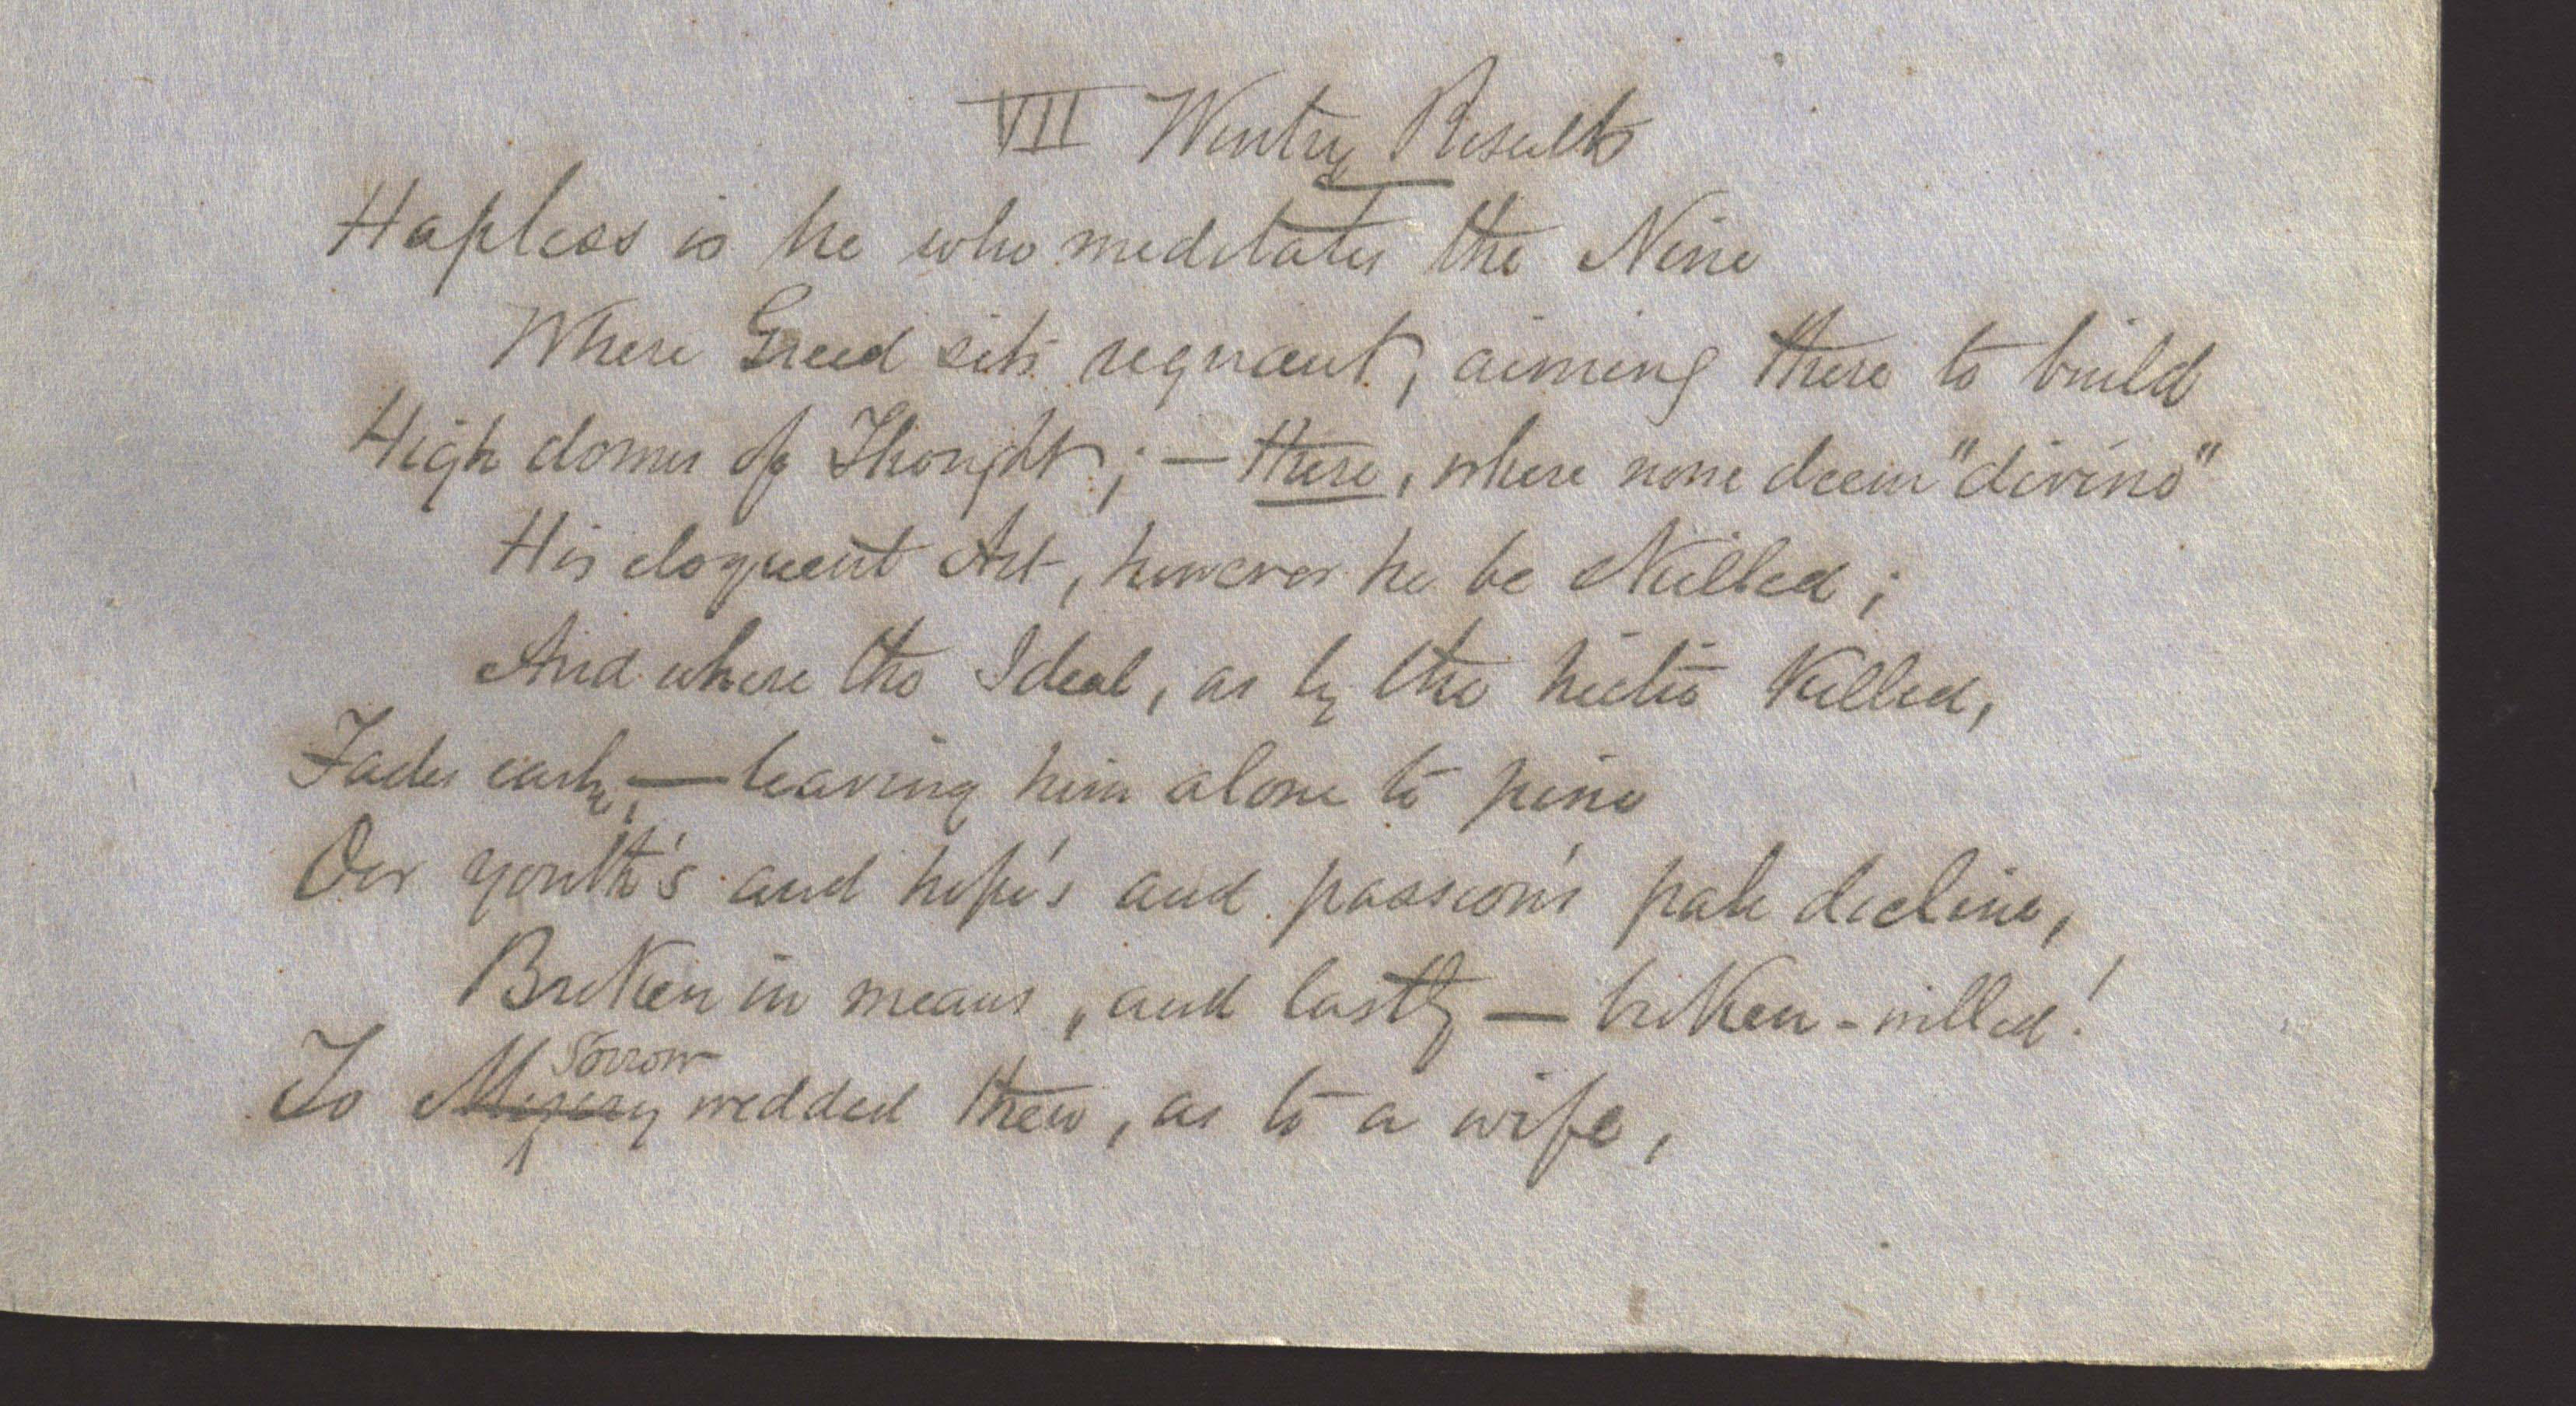 VII Wintry Results
Hapless is he who meditates the Nine
Where Greed sits regnant, aiming there to build
High domes of Thought; — there, where none deem "divine"
His eloquent Art, however he be skilled;
And where the Ideal, as by the hectic killed,
Fades early, — leaving him alone to pine
Oer youth's and hope's and passion's pale decline,
Broken in means, and lastly — broken-willed!
Sorrow
To Misery wedded then, as to a wife,